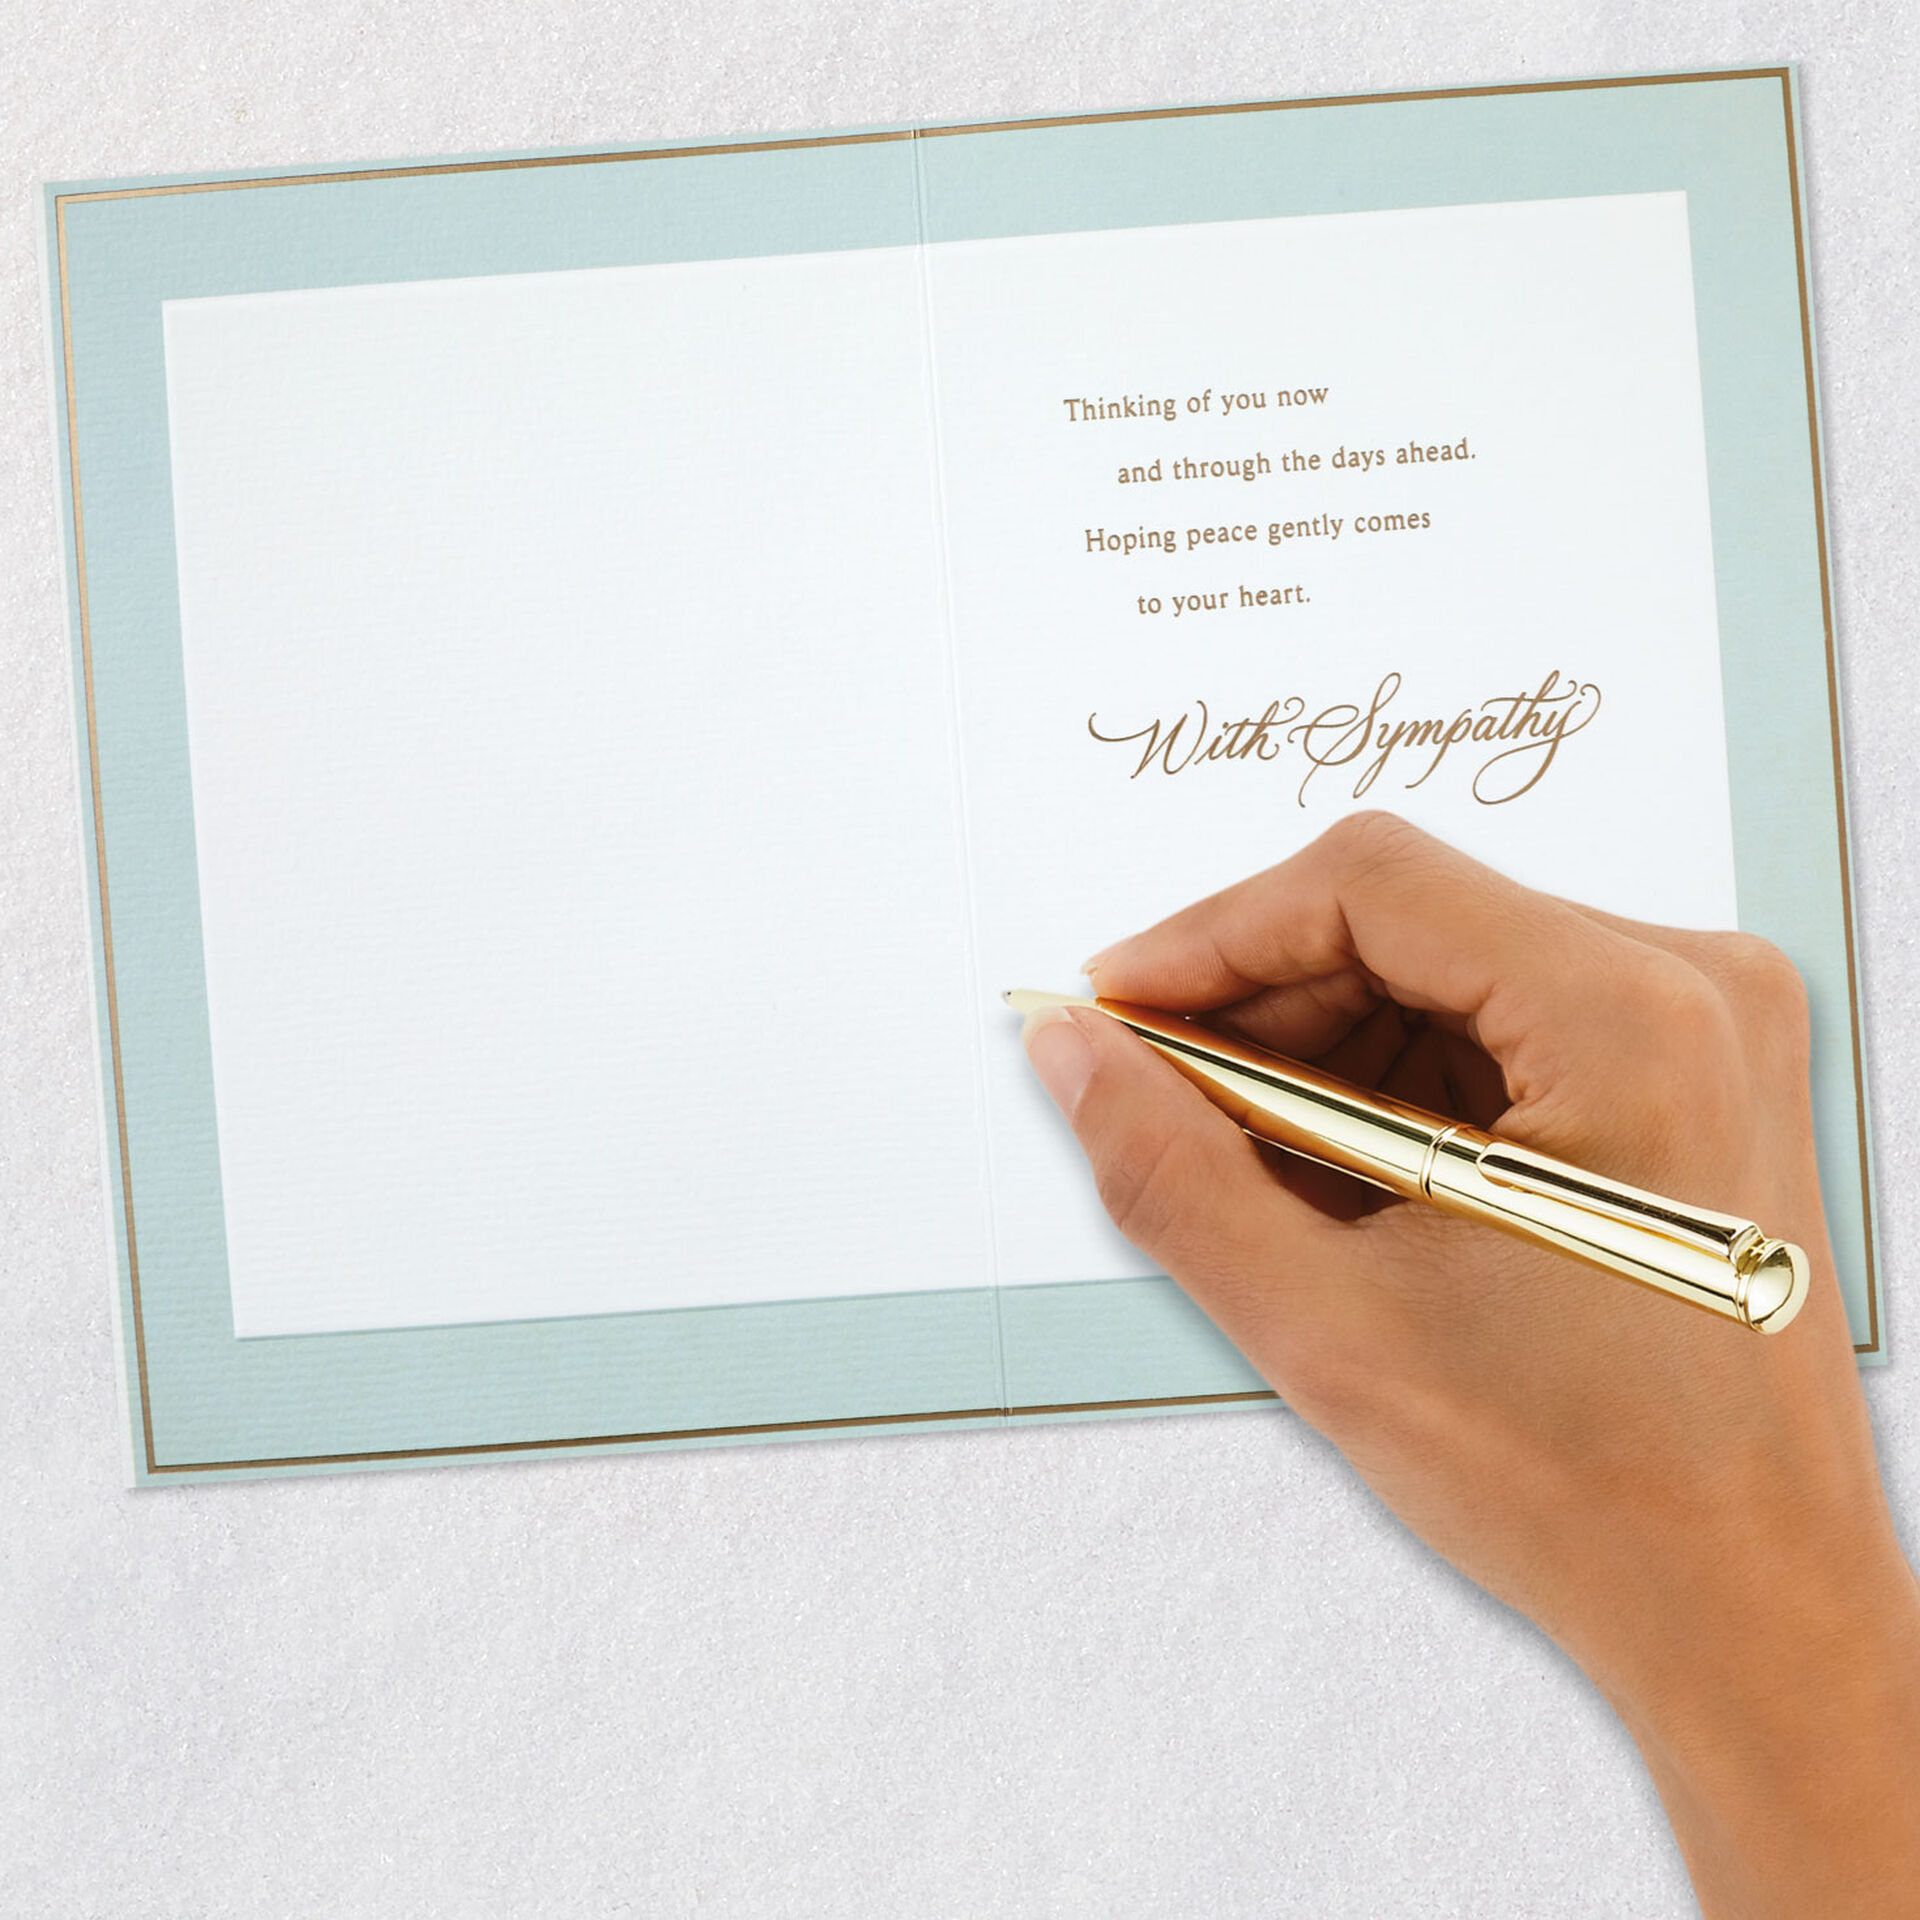 Thinking of you now
and through the days ahead.
Hoping peace gently comes
to your heart.
With Sympathy